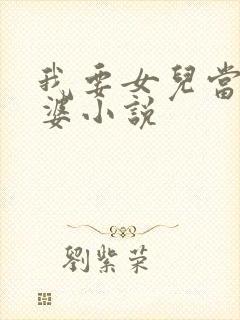 我要女兒當
婆小說
劉紫荣